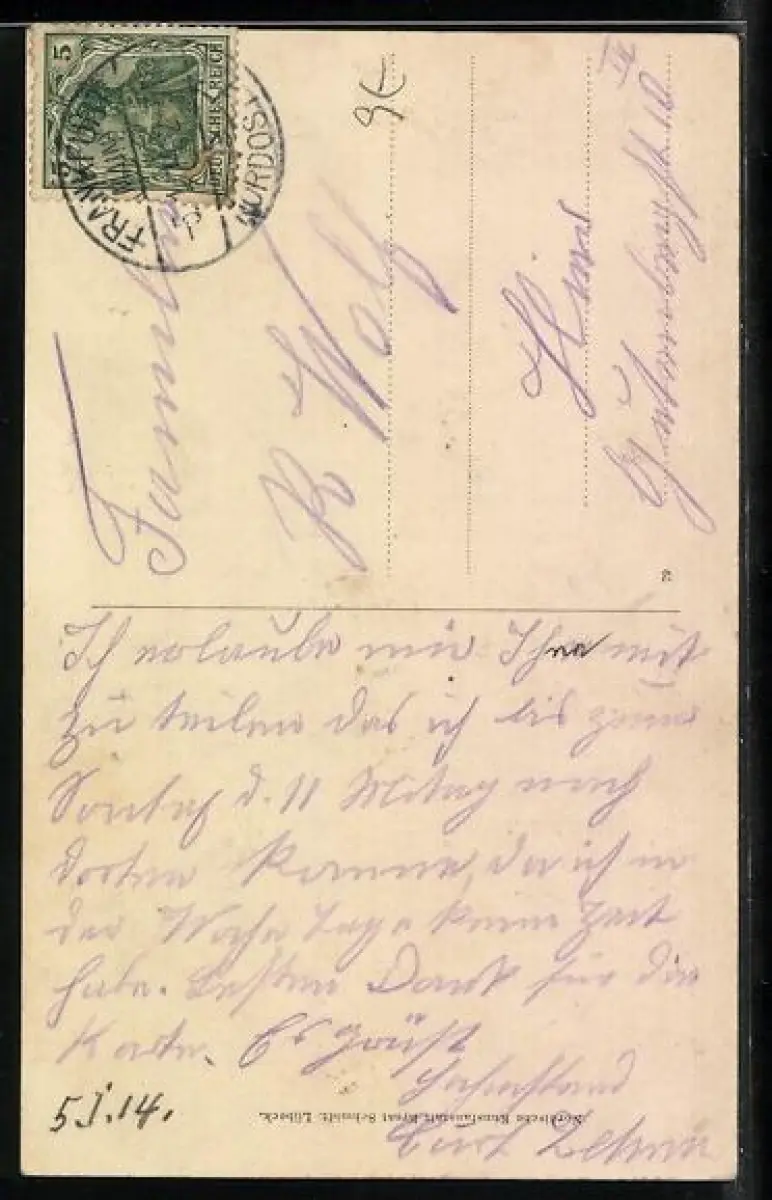 5
DEUTSCHES REICH
FRANKFURT
NORDOST
Familie
R Wolf
Hier
IV
Ich erlaube mir Ihnen mit
zu teilen das ich bis zum
Sontag d. 11 Mitag nach
dorten komme, da ich in
der Woche Tage keine Zeit
habe. Besten Dank für die
Karte. Es Grüßt
Curt
5 I. 14.
Nordische Kunstanstalt Ernst Schmidt, Lübeck.